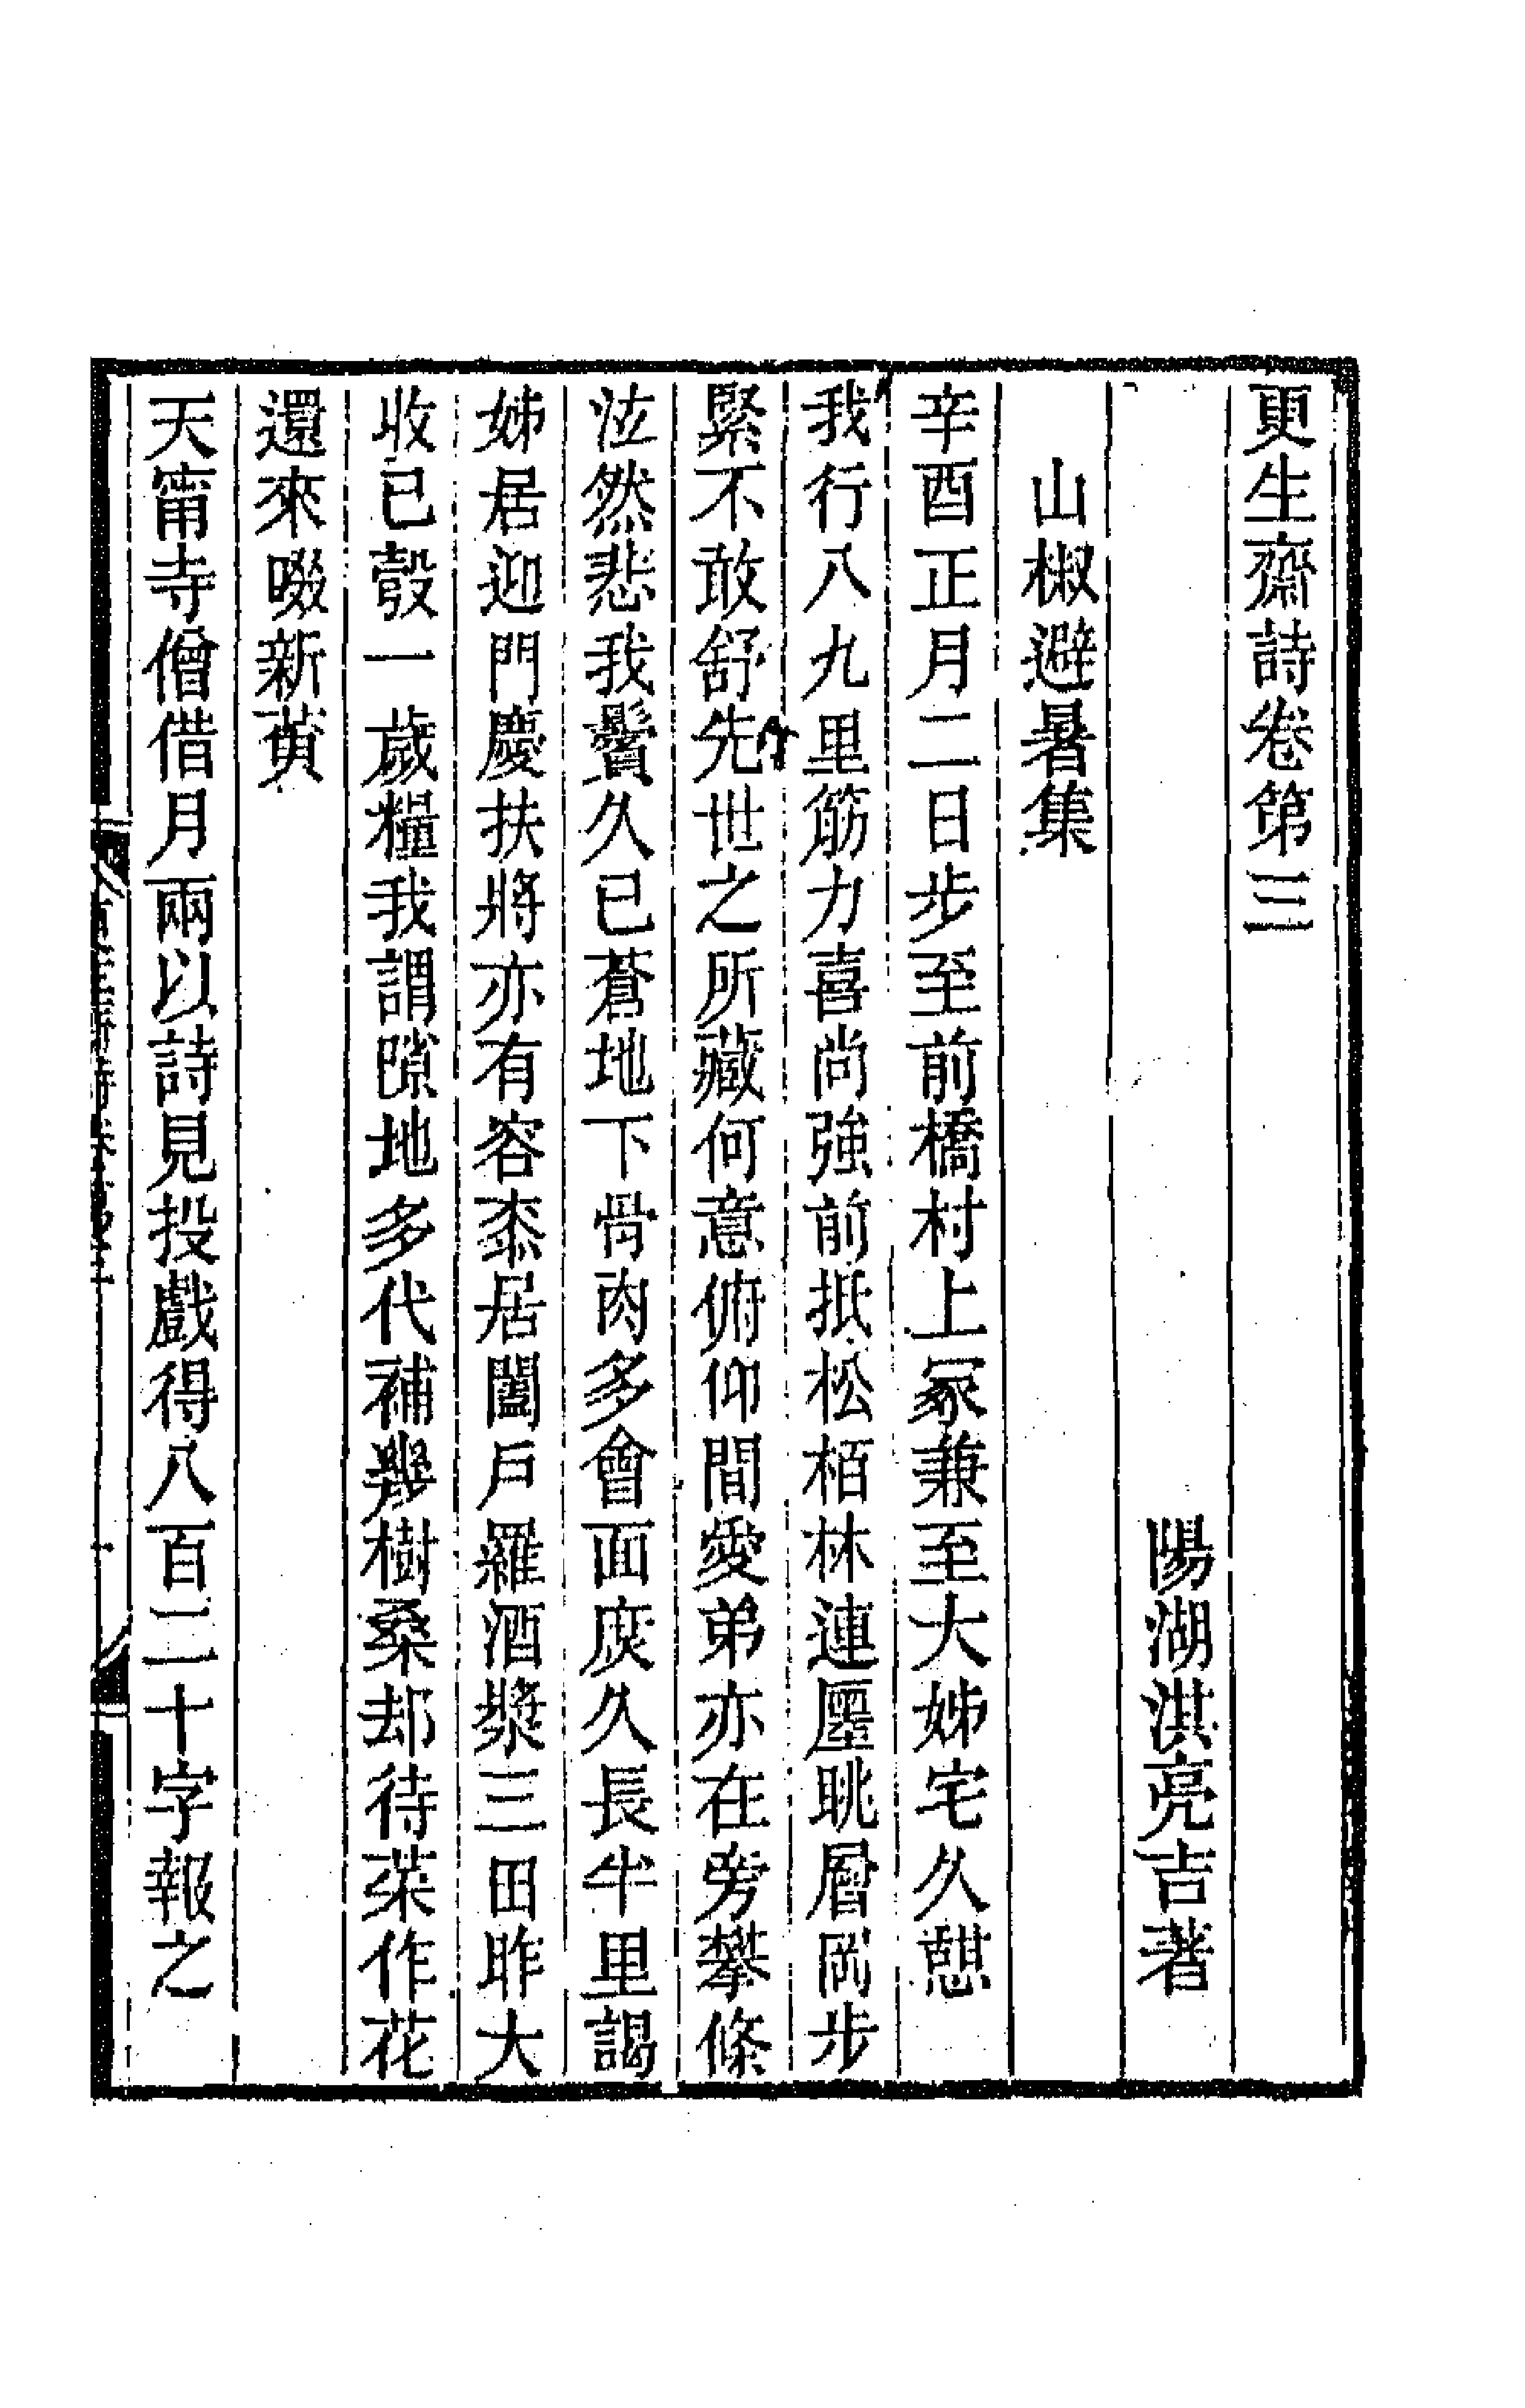 更生齋詩卷第三
陽湖洪亮吉著
山椒避暑集
辛酉正月二日步至前橋村上冢兼至大姊宅久憇
我行八九里筋力喜尚強前抵松栢林連壓眺層岡步
緊不敢舒先世之所藏何意俯仰間愛弟亦在旁攀條
泫然悲我鬢久已蒼地下骨肉多會面庶久長半里謁
姊居迎門慶扶將亦有容黍居闔戸羅酒漿三田昨大
收已彀一歲糧我謂隙地多代補樹桑却待菜作花
還來啜新黄
天甯寺僧借月兩以詩見投戲得八百二十字報之